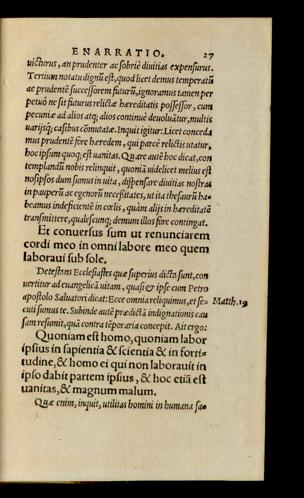 ENARRATIO. 27
uicturus, an prudenter ac sobriè diuitias expensurus.
Tertium notatu dignũ est, quod licet demus temperatũ
ac prudentẽ successorem futurũ, ignoramus tamen per
petuò ne sit futurus relictæ hæreditatis possessor, cum
pecuniæ ad alios atq; alios continuè deuoluãtur, multis
uarijsq; casibus cõmutatæ. Inquit igitur: Licet conceda
mus prudentẽ fore hæredem, qui parcè relictis utatur,
hoc ipsum quoq; est uanitas. Quare autẽ hoc dicat, con
templandũ nobis relinquit, quoniã uidelicet melius est
nosipsos dum sumus in uita, dispensare diuitias nostras
in pauperũ ac egenorũ necessitates, ut ita thesaurũ ha-
beamus indeficientẽ in cœlis, quàm alijs in hæreditatẽ
transmittere, qualescunq; demum illos fore contingat.
Et conuersus sum ut renunciarem
cordi meo in omni labore meo quem
laboraui sub sole.
Detestans Ecclesiastes quæ superius dicta sunt, con
uertitur ad euangelicã uitam, quasi & ipse cum Petro
apostolo Saluatori dicat: Ecce omnia reliquimus, et se- Matth. 19
cuti sumus te. Subinde autẽ prædictã indignationis cau
sam resumit, quã contra tẽporaria concepit. Ait ergo:
Quoniam est homo, quoniam labor
ipsius in sapientia & scientia & in forti-
tudine, & homo ei qui non laborauit in
ipso dabit partem ipsius, & hoc etiã est
uanitas, & magnum malum.
Quæ enim, inquit, utilitas homini in humana sa-